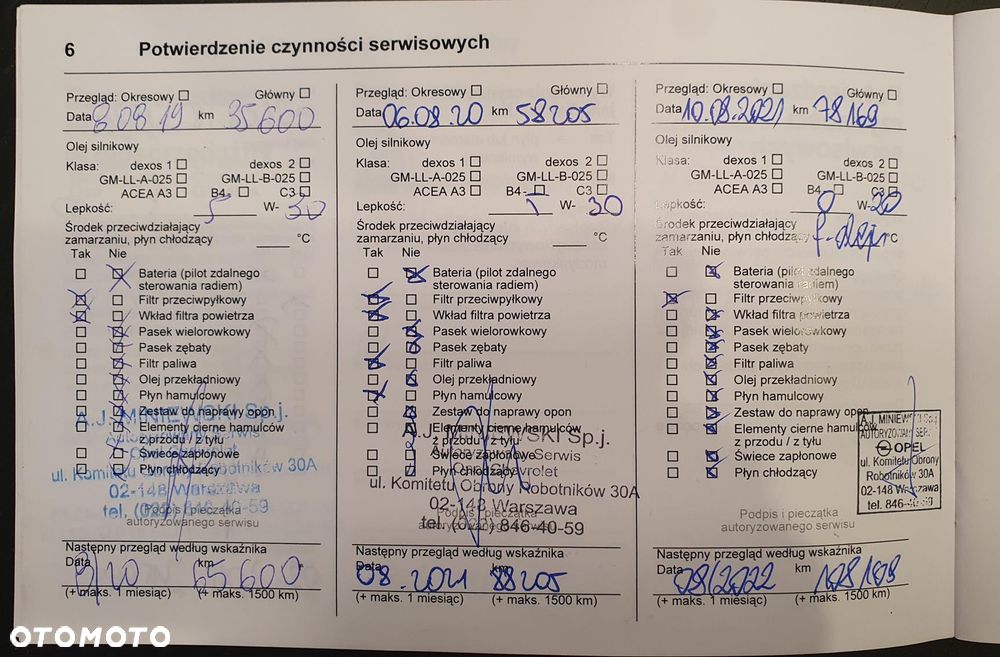 6 Potwierdzenie czynności serwisowych
Przegląd: Okresowy Główny
Data 8 08 19 km 35600
Olej silnikowy
Klasa: dexos 1 dexos 2
GM-LL-A-025 GM-LL-B-025
ACEA A3 B4 C3
Lepkość: 5 W- 30
Środek przeciwdziałający
zamarzaniu, płyn chłodzący °C
Tak Nie
Bateria (pilot zdalnego
sterowania radiem)
Filtr przeciwpyłkowy
Wkład filtra powietrza
Pasek wielorowkowy
Pasek zębaty
Filtr paliwa
Olej przekładniowy
Płyn hamulcowy
Zestaw do naprawy opon
Elementy cierne hamulców
z przodu / z tyłu
Świece zapłonowe
Płyn chłodzący
A.J. MINIEWSKI Sp.j.
Autoryzowany Serwis
ul. Komitetu Obrony Robotników 30A
02-148 Warszawa
tel. (022) 846-40-59
Podpis i pieczątka
autoryzowanego serwisu
Następny przegląd według wskaźnika
Data km 65600
(+ maks. 1 miesiąc) (+ maks. 1500 km)
Przegląd: Okresowy Główny
Data 06.08.20 km 58205
Olej silnikowy
Klasa: dexos 1 dexos 2
GM-LL-A-025 GM-LL-B-025
ACEA A3 B4 C3
Lepkość: 5 W- 30
Środek przeciwdziałający
zamarzaniu, płyn chłodzący °C
Tak Nie
Bateria (pilot zdalnego
sterowania radiem)
Filtr przeciwpyłkowy
Wkład filtra powietrza
Pasek wielorowkowy
Pasek zębaty
Filtr paliwa
Olej przekładniowy
Płyn hamulcowy
Zestaw do naprawy opon
Elementy cierne hamulców
z przodu / z tyłu
Świece zapłonowe
Płyn chłodzący
A.J. MINIEWSKI Sp.j.
Autoryzowany Serwis
Opel Chevrolet
ul. Komitetu Obrony Robotników 30A
02-148 Warszawa
tel. (022) 846-40-59
Podpis i pieczątka
autoryzowanego serwisu
Następny przegląd według wskaźnika
Data 08.2021 km 88205
(+ maks. 1 miesiąc) (+ maks. 1500 km)
Przegląd: Okresowy Główny
Data 10.08.2021 km 78169
Olej silnikowy
Klasa: dexos 1 dexos 2
GM-LL-A-025 GM-LL-B-025
ACEA A3 B4 C3
Lepkość: 0 W- 20
Środek przeciwdziałający
zamarzaniu, płyn chłodzący °C
Tak Nie
Bateria (pilot zdalnego
sterowania radiem)
Filtr przeciwpyłkowy
Wkład filtra powietrza
Pasek wielorowkowy
Pasek zębaty
Filtr paliwa
Olej przekładniowy
Płyn hamulcowy
Zestaw do naprawy opon
Elementy cierne hamulców
z przodu / z tyłu
Świece zapłonowe
Płyn chłodzący
A.J. MINIEWSKI Sp.j.
AUTORYZOWANY SER.
OPEL
ul. Komitetu Obrony
Robotników 30A
02-148 Warszawa
tel. 846-40-59
Podpis i pieczątka
autoryzowanego serwisu
Następny przegląd według wskaźnika
Data 08/2022 km 108169
(+ maks. 1 miesiąc) (+ maks. 1500 km)
OTOMOTO